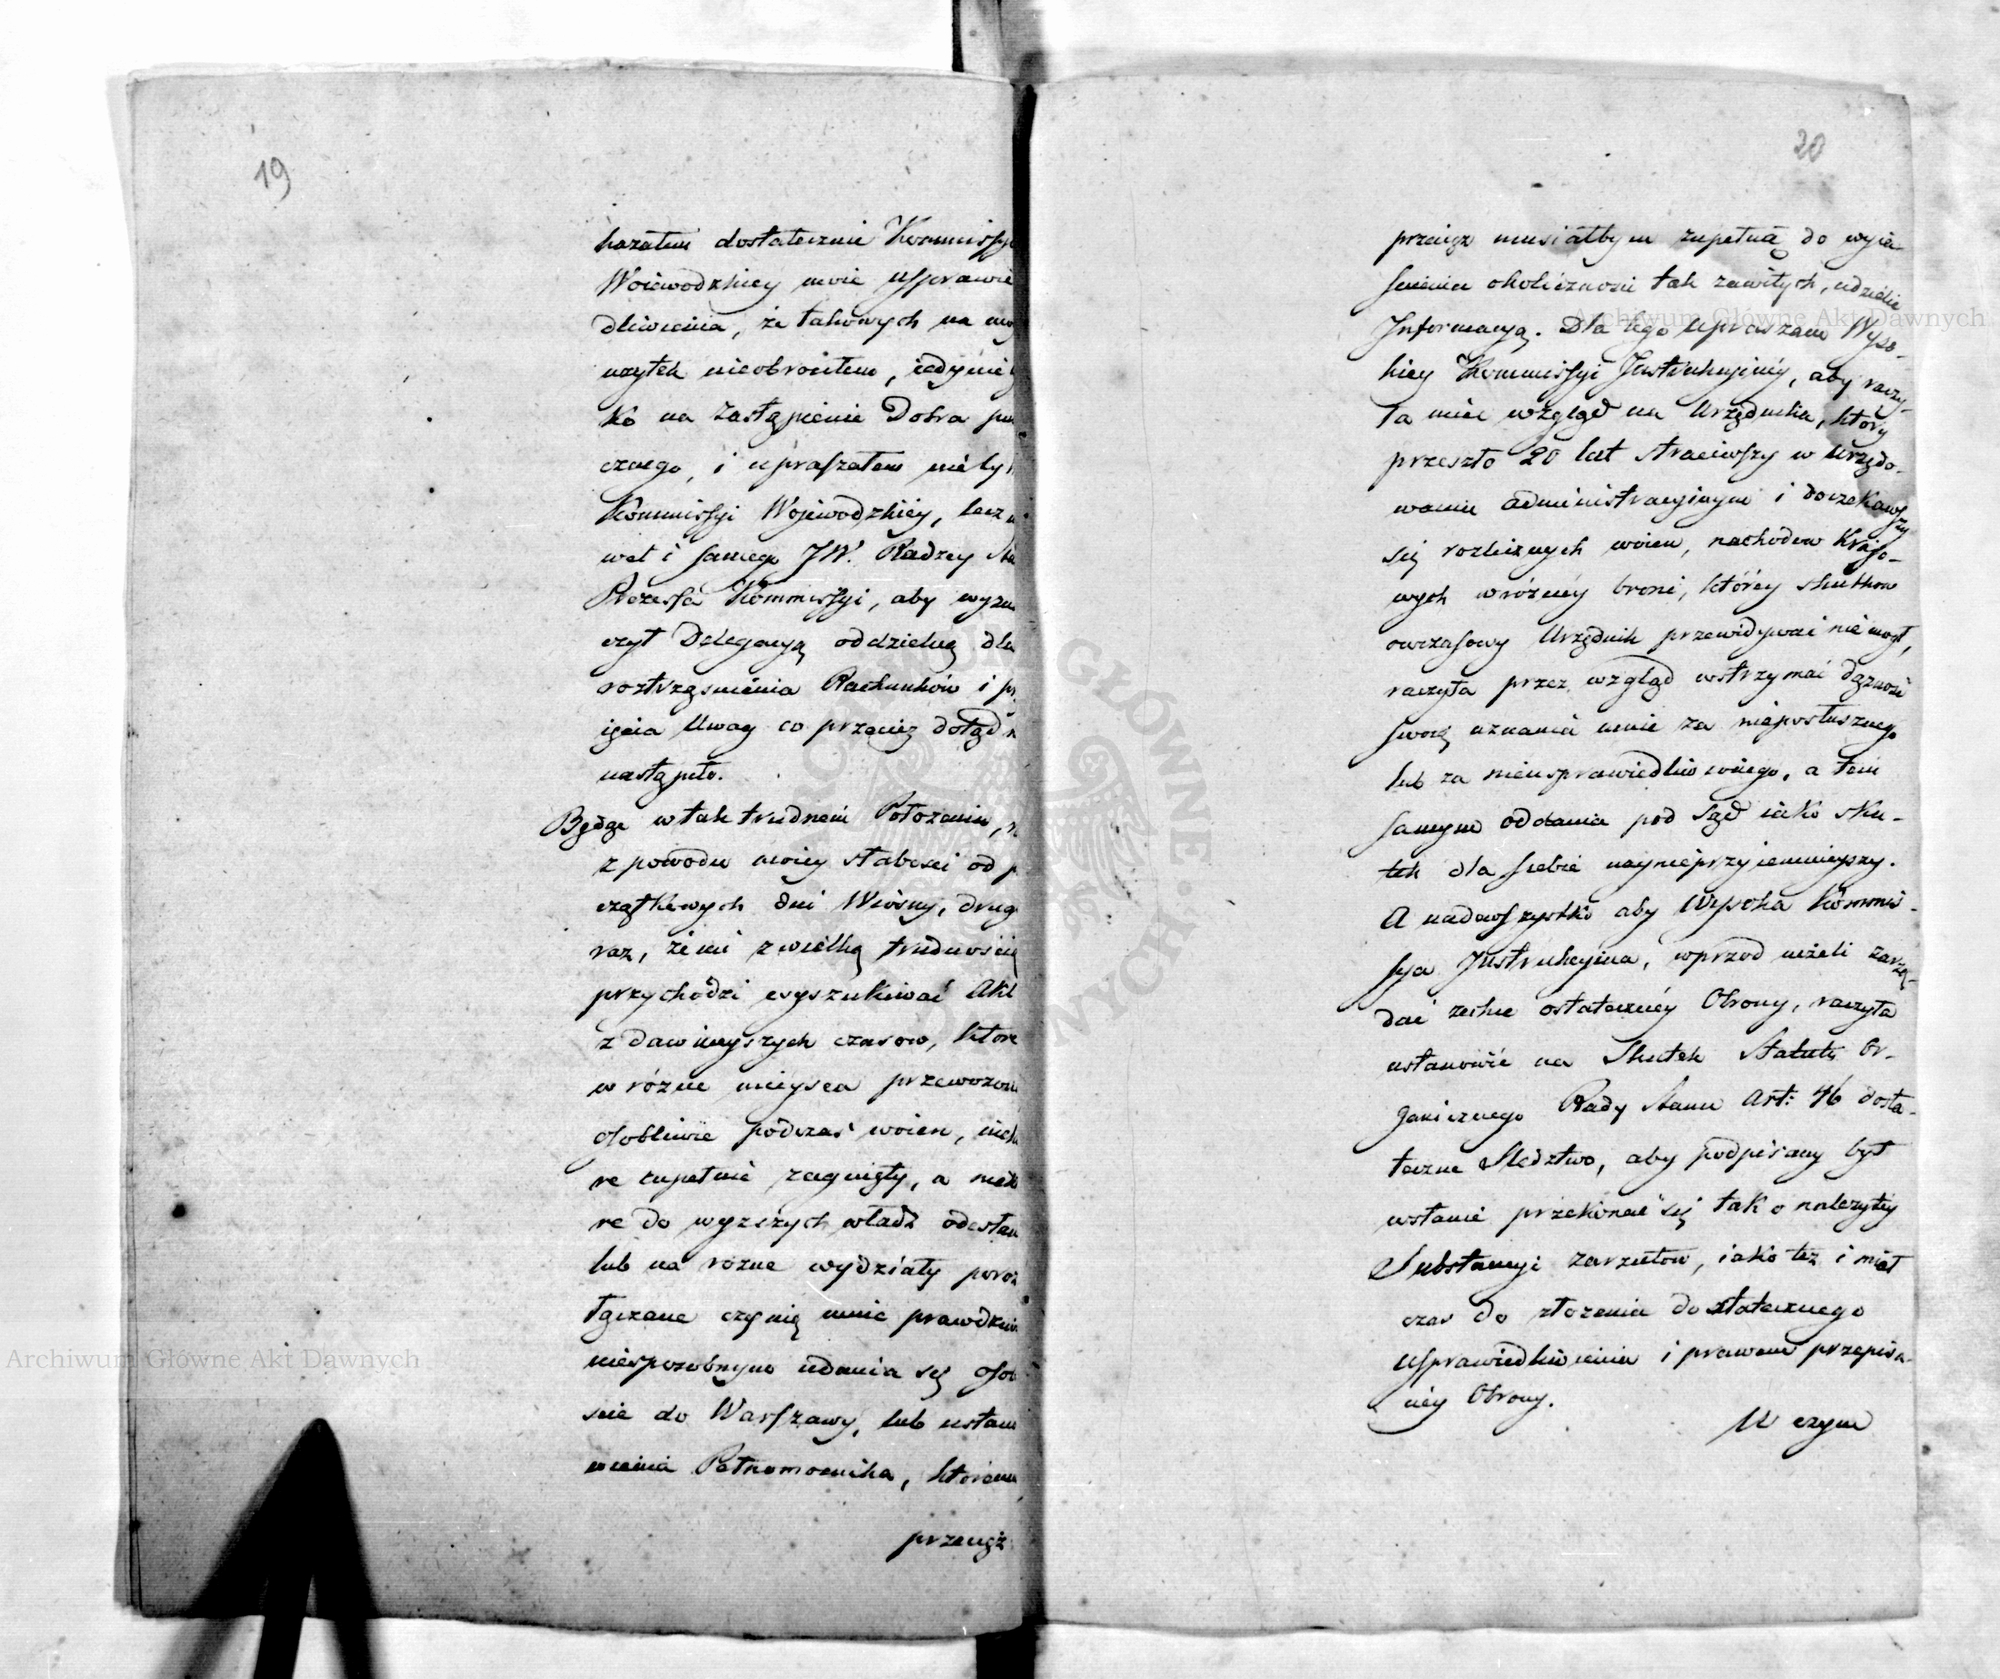 19
kazałem dostatecznie Kommissyi
Woiewodzkiey moie usprawie
dliwienia, że takowych na mój
użytek nieobróciłem, iedynie
ko na zastąpienie Dobra pu
cznego, i upraszałem nie ty
Kommissyi Wojewodzkiey, lecz n
wet i samego JW. Radzcy Sta
Prezesa Kommissyi, aby wyzna
czył Delegacyą oddzielną dla
roztrząśnienia Rachunków i pr
ięcia Uwag co przecież dotąd n
nastąpiło.
Będąc w tak trudnem Położeniu,
z powodu moiey słabości od p
czątkowych dni Wiosny, drug
raz, że mi z wielką trudnością
przychodzi wyszukiwać Akt
z dawnieyszych czasow, które
w różne mieysca przewożone
osobliwie podczas woien, niektó
re zupełnie zaginęły, a niektó
re do wyższych władz odesłane
lub na rożne wydziały poroz
łączane czynią mnie prawdziwie
niesposobnym udania się osobi
ście do Warszawy, lub ustano
wienia Pełnomocnika, któremu
przeciąż
20
przeciąż musiałbym zupełną do wyia-
śnienia okoliczności tak zawiłych, udzielić
Informacyą. Dla tego upraszam Wyso-
kiey Kommissyi Instrukcyiney, aby raczy-
ła mieć wzgląd na Urzędnika, który
przeszło 20 lat straciwszy w Urzędo-
waniu administracyinym i doczekawszy
się rozlicznych woien, nachodow Krajo-
wych w różney broni, którey skutkow
owczasowy Urzędnik przewidywać nie mogł,
raczyła przez wzgląd wstrzymać dążność
swoią uznania mnie za nieposłusznego
lub za nieusprawiedliwionego, a tem
samym oddania pod Sąd iako sku-
tek dla siebie naynieprzyiemnieyszy.
A nadewszystko aby Wysoka Kommis-
sya Instrukcyina, wprzod nieżeli zażą-
dać zechce ostateczney Obrony, raczyła
ustanowić na Skutek Statutu Or-
ganicznego Rady Stanu Art: 46 dosta-
teczne Sledztwo, aby podpisany był
wstanie przekonać się tak o należytey
Substancyi zarzutow, iako też i miał
czas do złożenia dostatecznego
Usprawiedliwienia i prawem przepisa-
ney Obrony.
W czym
Archiwum Główne Akt Dawnych
Archiwum Główne Akt Dawnych
ARCHIWUM GŁÓWNE AKT DAWNYCH